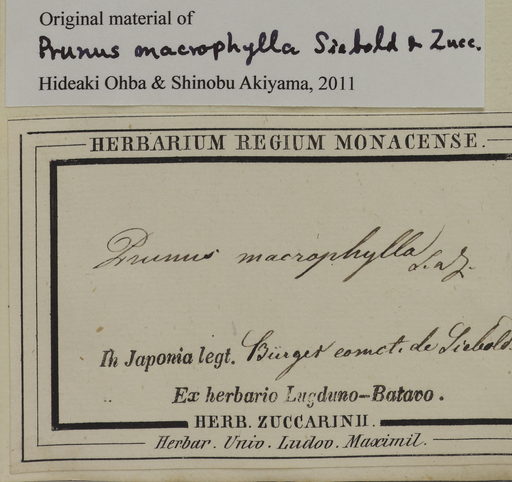 Original material of
Prunus macrophylla Siebold & Zucc.
Hideaki Ohba & Shinobu Akiyama, 2011
HERBARIUM REGIUM MONACENSE.
Prunus macrophylla
S. a Z.
In Japonia legt. Bürger comct. de Siebold.
Ex herbario Lugduno-Batavo.
HERB. ZUCCARINII.
Herbar. Univ. Ludov. Maximil.